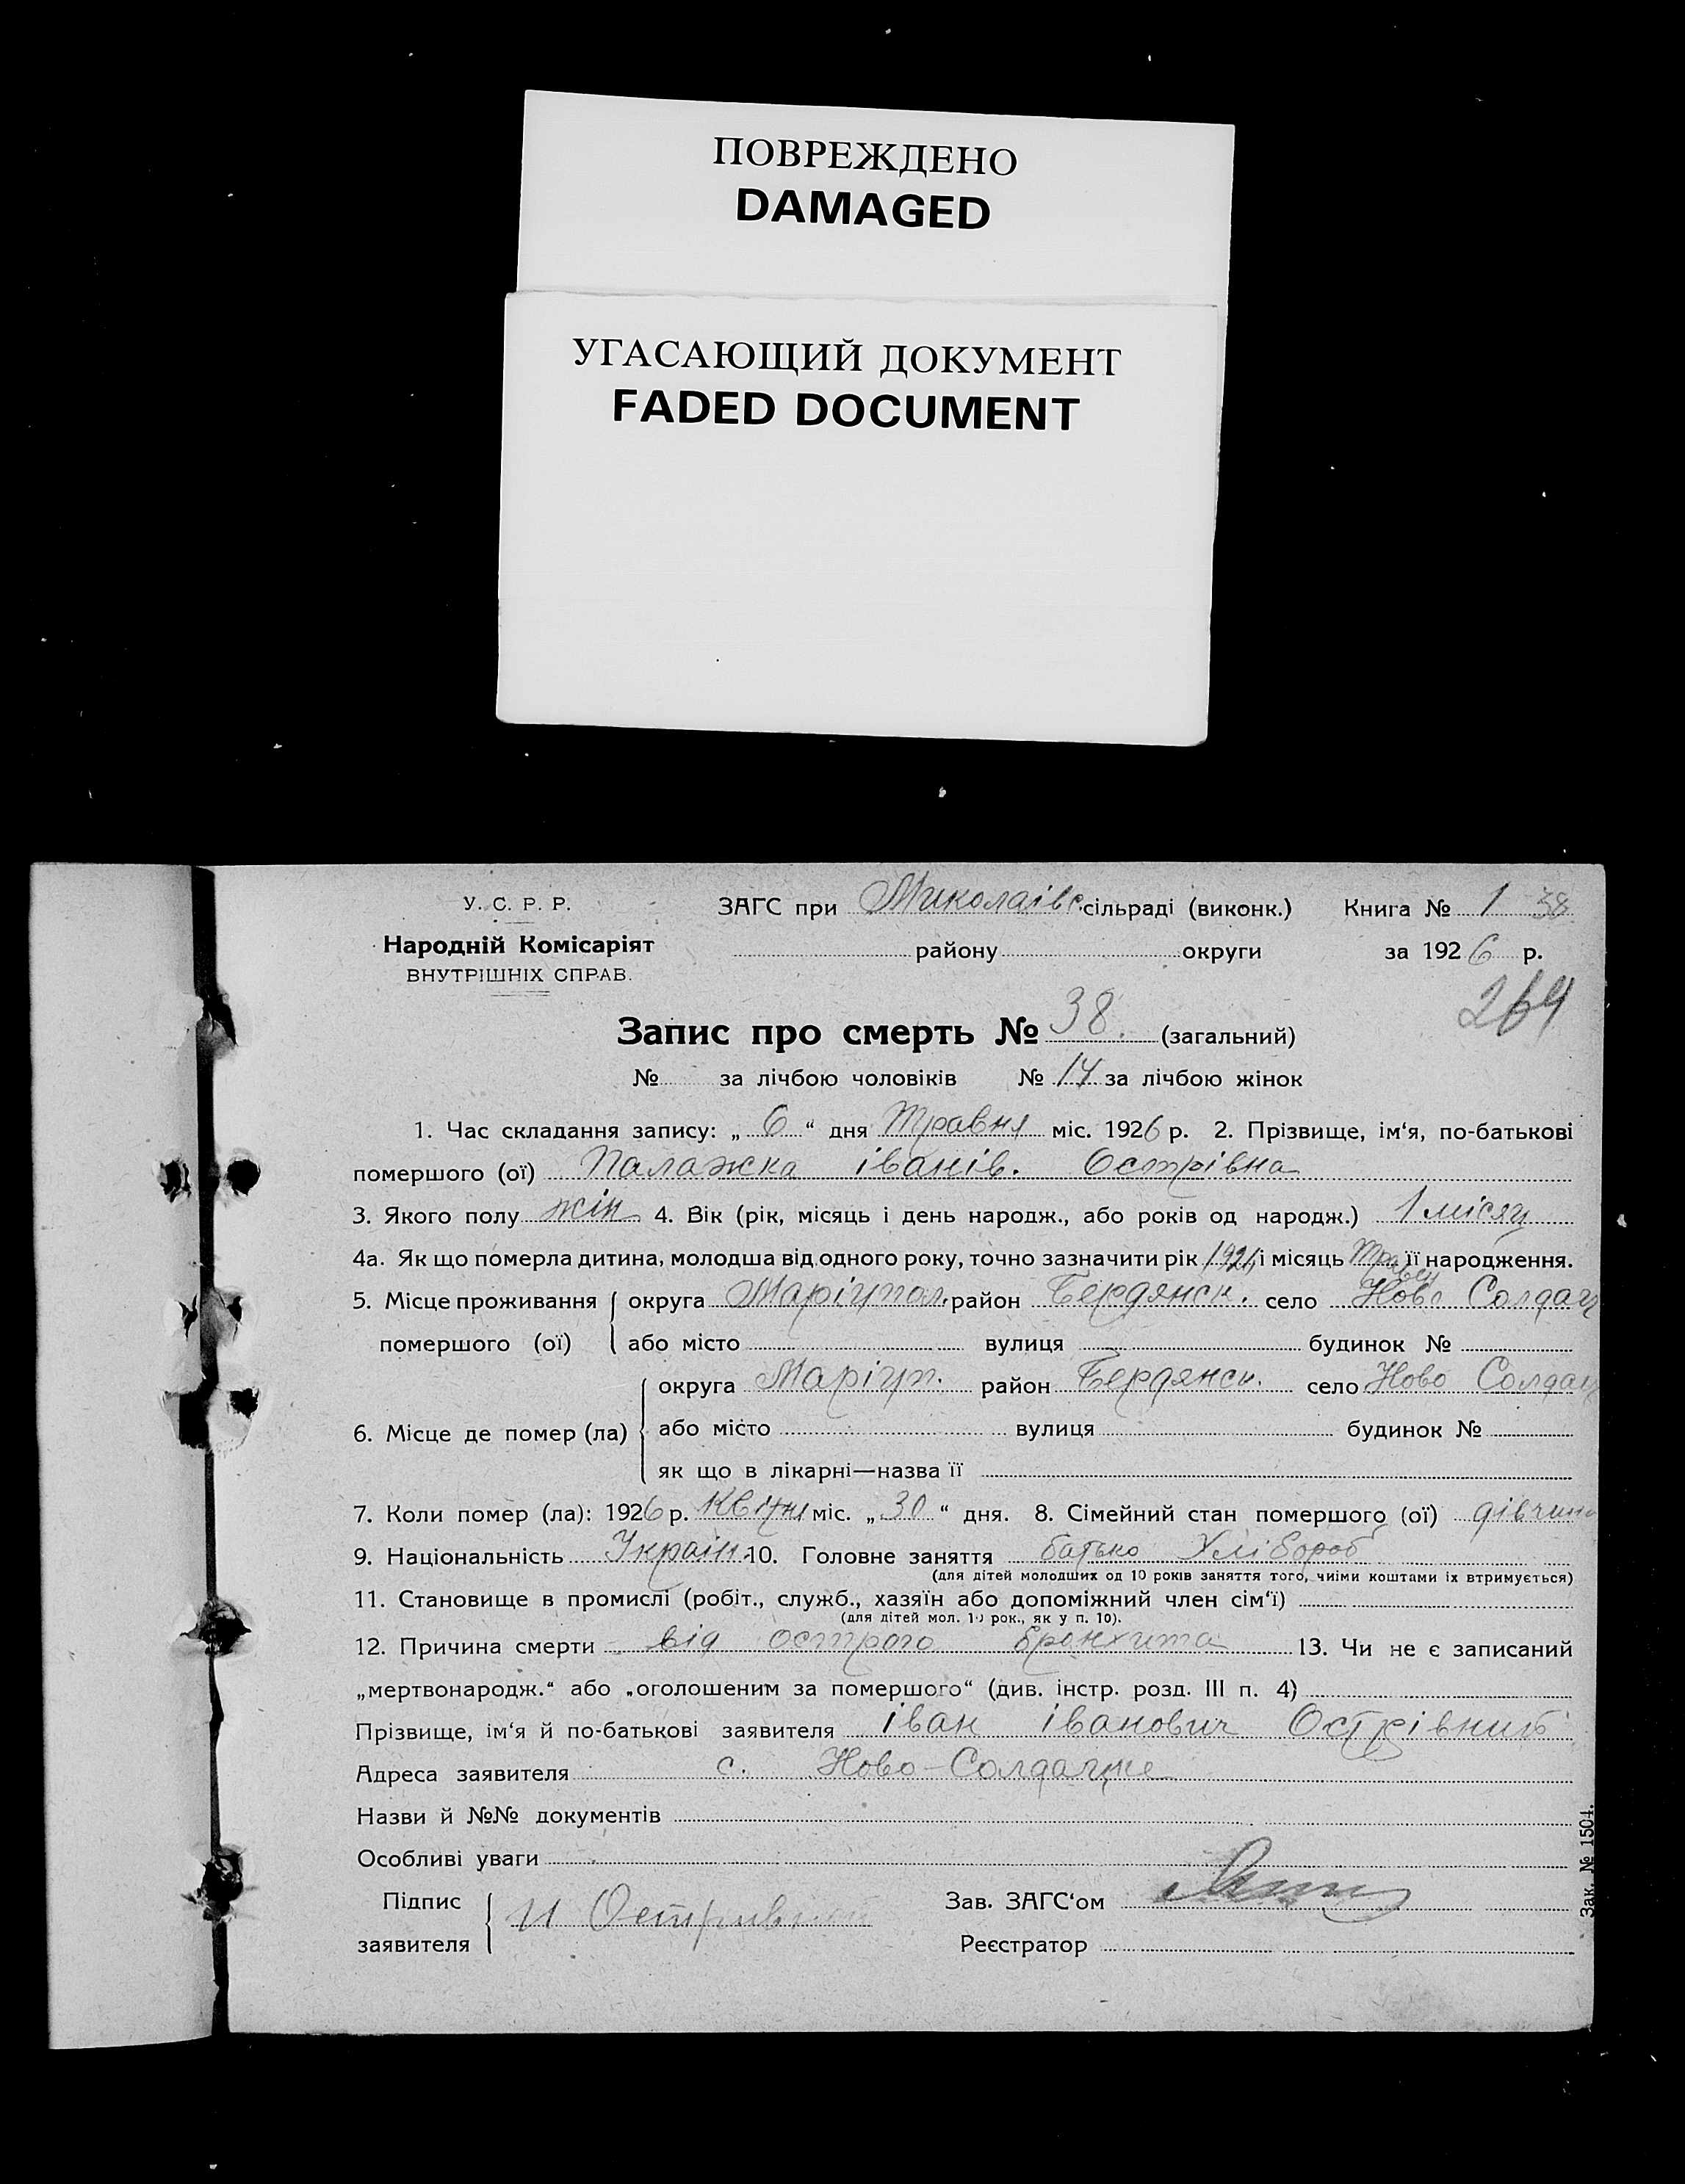 ПОВРЕЖДЕНО
DAMAGED
УГАСАЮЩИЙ ДОКУМЕНТ
FADED DOCUMENT
У. С. Р. Р.
Народній Комісаріят
ВНУТРІШНІХ СПРАВ.
ЗАГС при Миколаівс. сільраді (виконк.) Книга № 1 38
району округи за 1926 р.
264
Запис про смерть № 38. (загальний)
№ за лічбою чоловіків № 14 за лічбою жінок
1. Час складання запису: „ 6 “ дня Травня міс. 1926 р. 2. Прізвище, ім‘я, по-батькові
помершого (ої) Палажка іванів. Острівна
3. Якого полу жін 4. Вік (рік, місяць і день народж., або років од народж.) 1 місяц
4а. Як що померла дитина, молодша від одного року, точно зазначити рік і місяць її народження.
5. Місце проживання округа Маріупол. район Бердянск. село Ново Солдац
помершого (ої) або місто вулиця будинок №
6. Місце де помер (ла) округа Маріуп. район Бердянск. село Ново Солдац
або місто вулиця будинок №
як що в лікарні—назва її
7. Коли помер (ла): 1926 р. Квітня міс. „ 30 “ дня. 8. Сімейний стан помершого (ої) дівчина
9. Національність Украін. 10. Головне заняття батько Хлібороб
(для дітей молодших од 10 років заняття того, чиїми коштами іх втримується)
11. Становище в промислі (робіт., служб., хазяїн або допоміжний член сім‘ї)
(для дітей мол. 10 рок., як у п. 10).
12. Причина смерти від острого бронхита 13. Чи не є записаний
„мертвонародж.“ або „оголошеним за помершого“ (див. інстр. розд. III п. 4)
Прізвище, ім‘я й по-батькові заявителя іван іванович Острівний
Адреса заявителя с. Ново-Солдацке
Назви й №№ документів
Особливі уваги
Підпис заявителя И Остривной
Зав. ЗАГС‘ом
Реєстратор
Зак. № 1504.